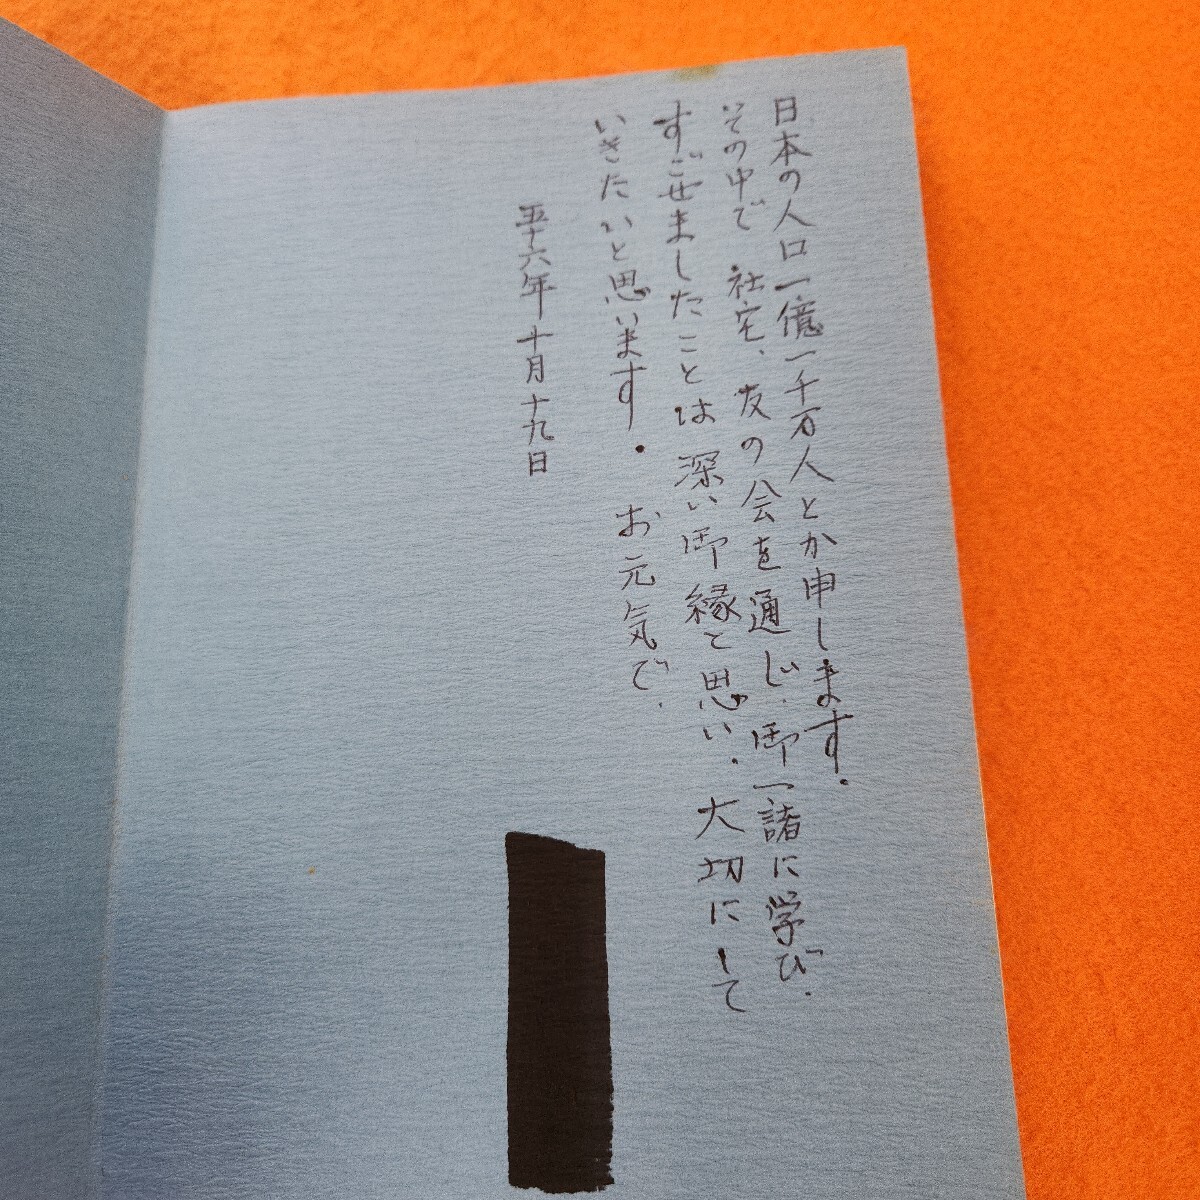 日本の人口一億一千万人とか申します.
その中で 社宅、友の会を通じ、御一諸に学び、
すごせましたことは深い御縁と思い、大切にして
いきたいと思います. お元気で、
五十六年十月十九日